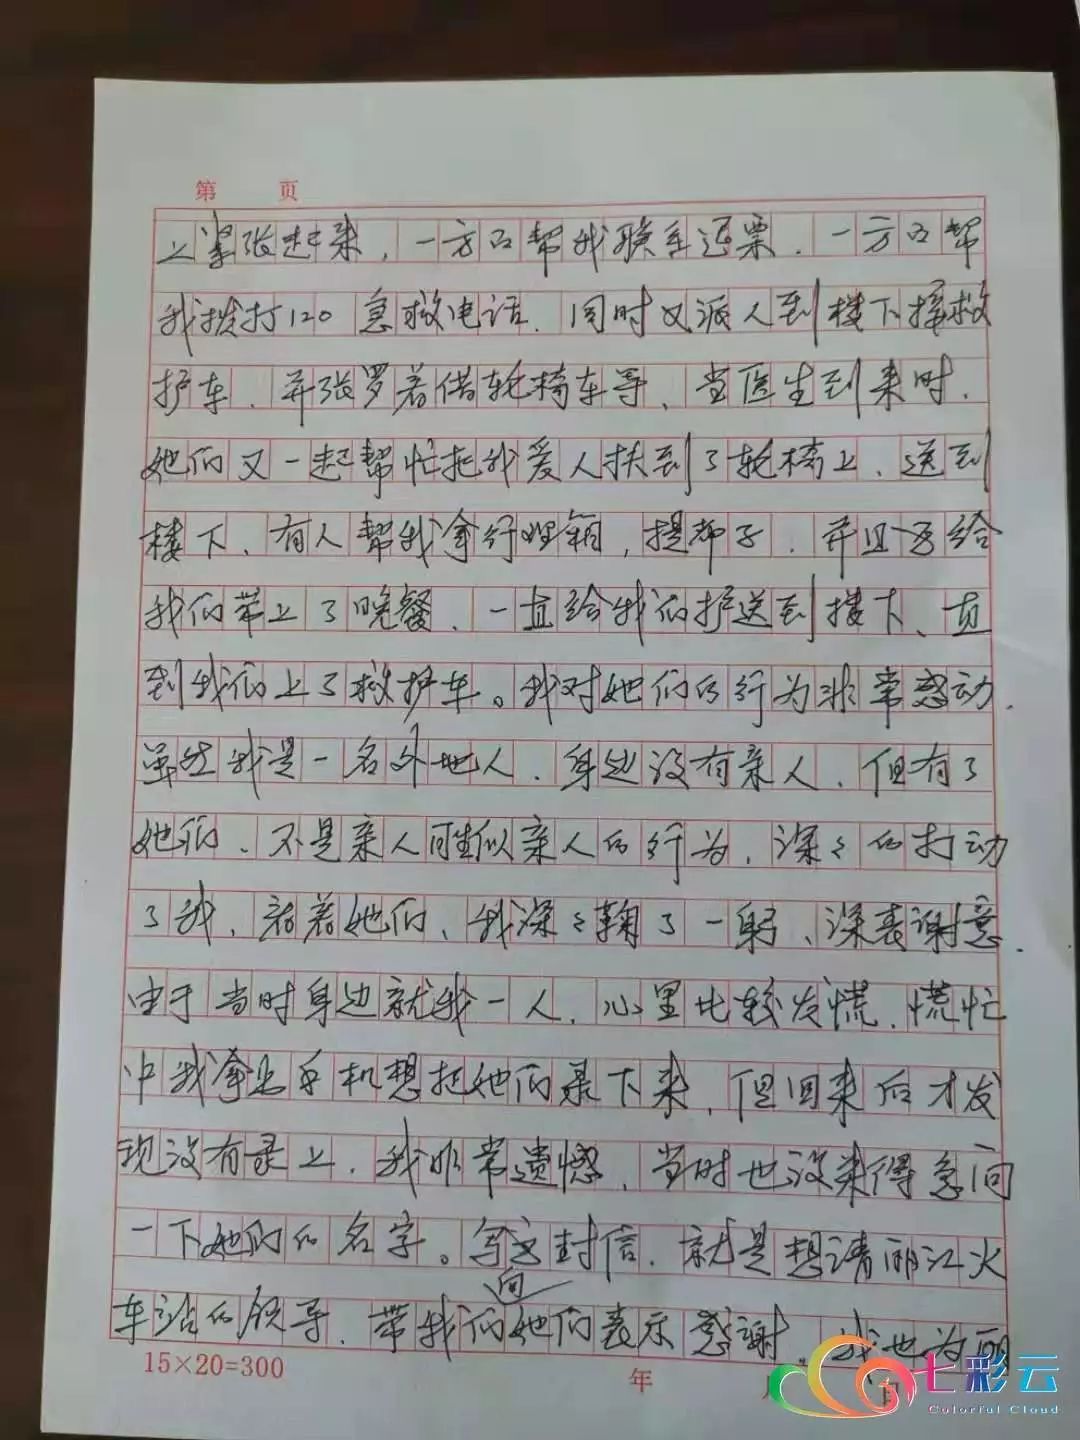 第 页
上紧张起来，一方面帮我联系退票．一方面帮
我拨打120急救电话．同时又派人到楼下接救
护车、并张罗着借轮椅车等、当医生到来时．
她们又一起帮忙把我爱人扶到了轮椅上、送到
楼下、有人帮我拿行李箱，提 子．并且 给
我们带上了晚餐．一直给我们护送到楼下、直
到我们上了救护车。我对她们的行为非常感动．
虽然我是一名外地人．身边没有亲人．但有了
她们、不是亲人胜似亲人的行为，深々的打动
了我，看着她们、我深々鞠了一躬、深表谢意．
由于当时身边就我一人．心里比较发慌．慌忙
中我拿出手机想把她们录下来，但回来后才发
现没有录上．我非常遗憾．当时也没来得急问
一下她们的名字。写这封信．就是想请丽江火
车站的领导、带我们向她们表示感谢．我也为丽
15×20=300 年 月 日
七彩云
Colorful Cloud